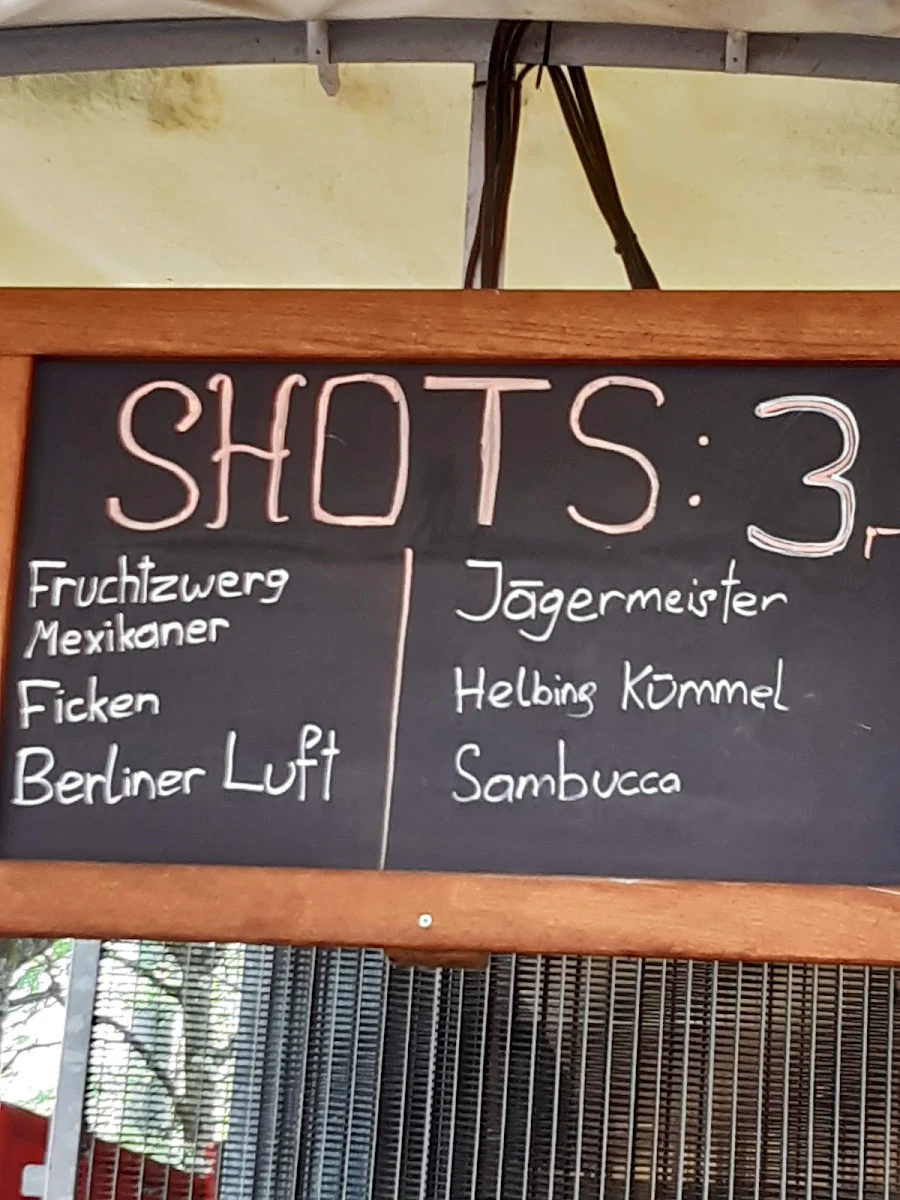 SHOTS: 3,-
Fruchtzwerg
Mexikaner
Ficken
Berliner Luft
Jägermeister
Helbing Kümmel
Sambucca